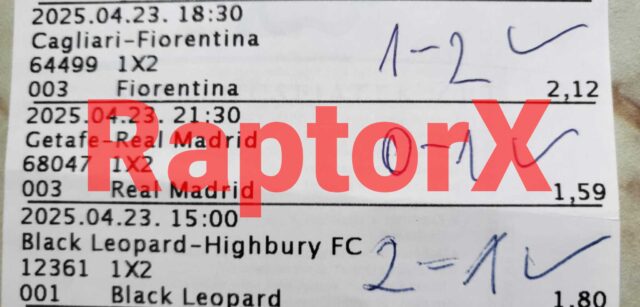 2025.04.23. 18:30
Cagliari-Fiorentina
64499 1X2
1-2 ✓
003 Fiorentina 2,12
2025.04.23. 21:30
Getafe-Real Madrid
68047 1X2
0-1 ✓
003 Real Madrid 1,59
RaptorX
2025.04.23. 15:00
Black Leopard-Highbury FC
12361 1X2
2=1 ✓
001 Black Leopard 1,80